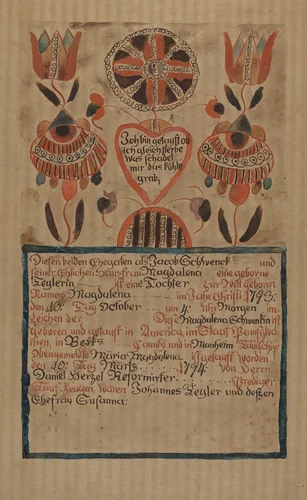 Ich bin getauft ob
ich gleich sterbe
was schadet
mir das kühle
grab,
Diesen beiden Ehegatten als Jacob Schwenck und
seiner Ehlichen Hausfrau Magdalena eine geborne
Zeglerin ist eine Tochter zur Welt geboren
Namens Magdalena im Jahr Christi 1793:
den Tag October um 4 Uhr Morgen im
zeichen der Diese Magdalena Schwenkin ist
geboren und getauft in America, im Staat
in Berks Caunty und in Manheim Taunschip
Obengemelde Maria Magdalena ist getauft worden
den 10: Tag Märtz 1794 von Herrn
Daniel Herzel Reformirter Prediger
Tauf Zeugen, Waren Johannes Zegler und deßzen
Ehefrau Susanna: